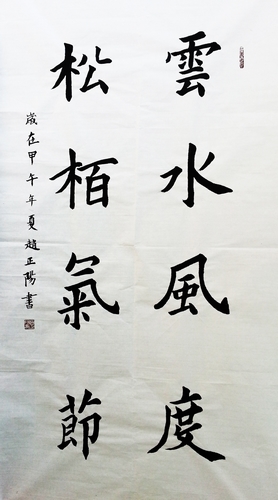 雲水風度
松栢氣節
歲在甲午年夏趙正陽書